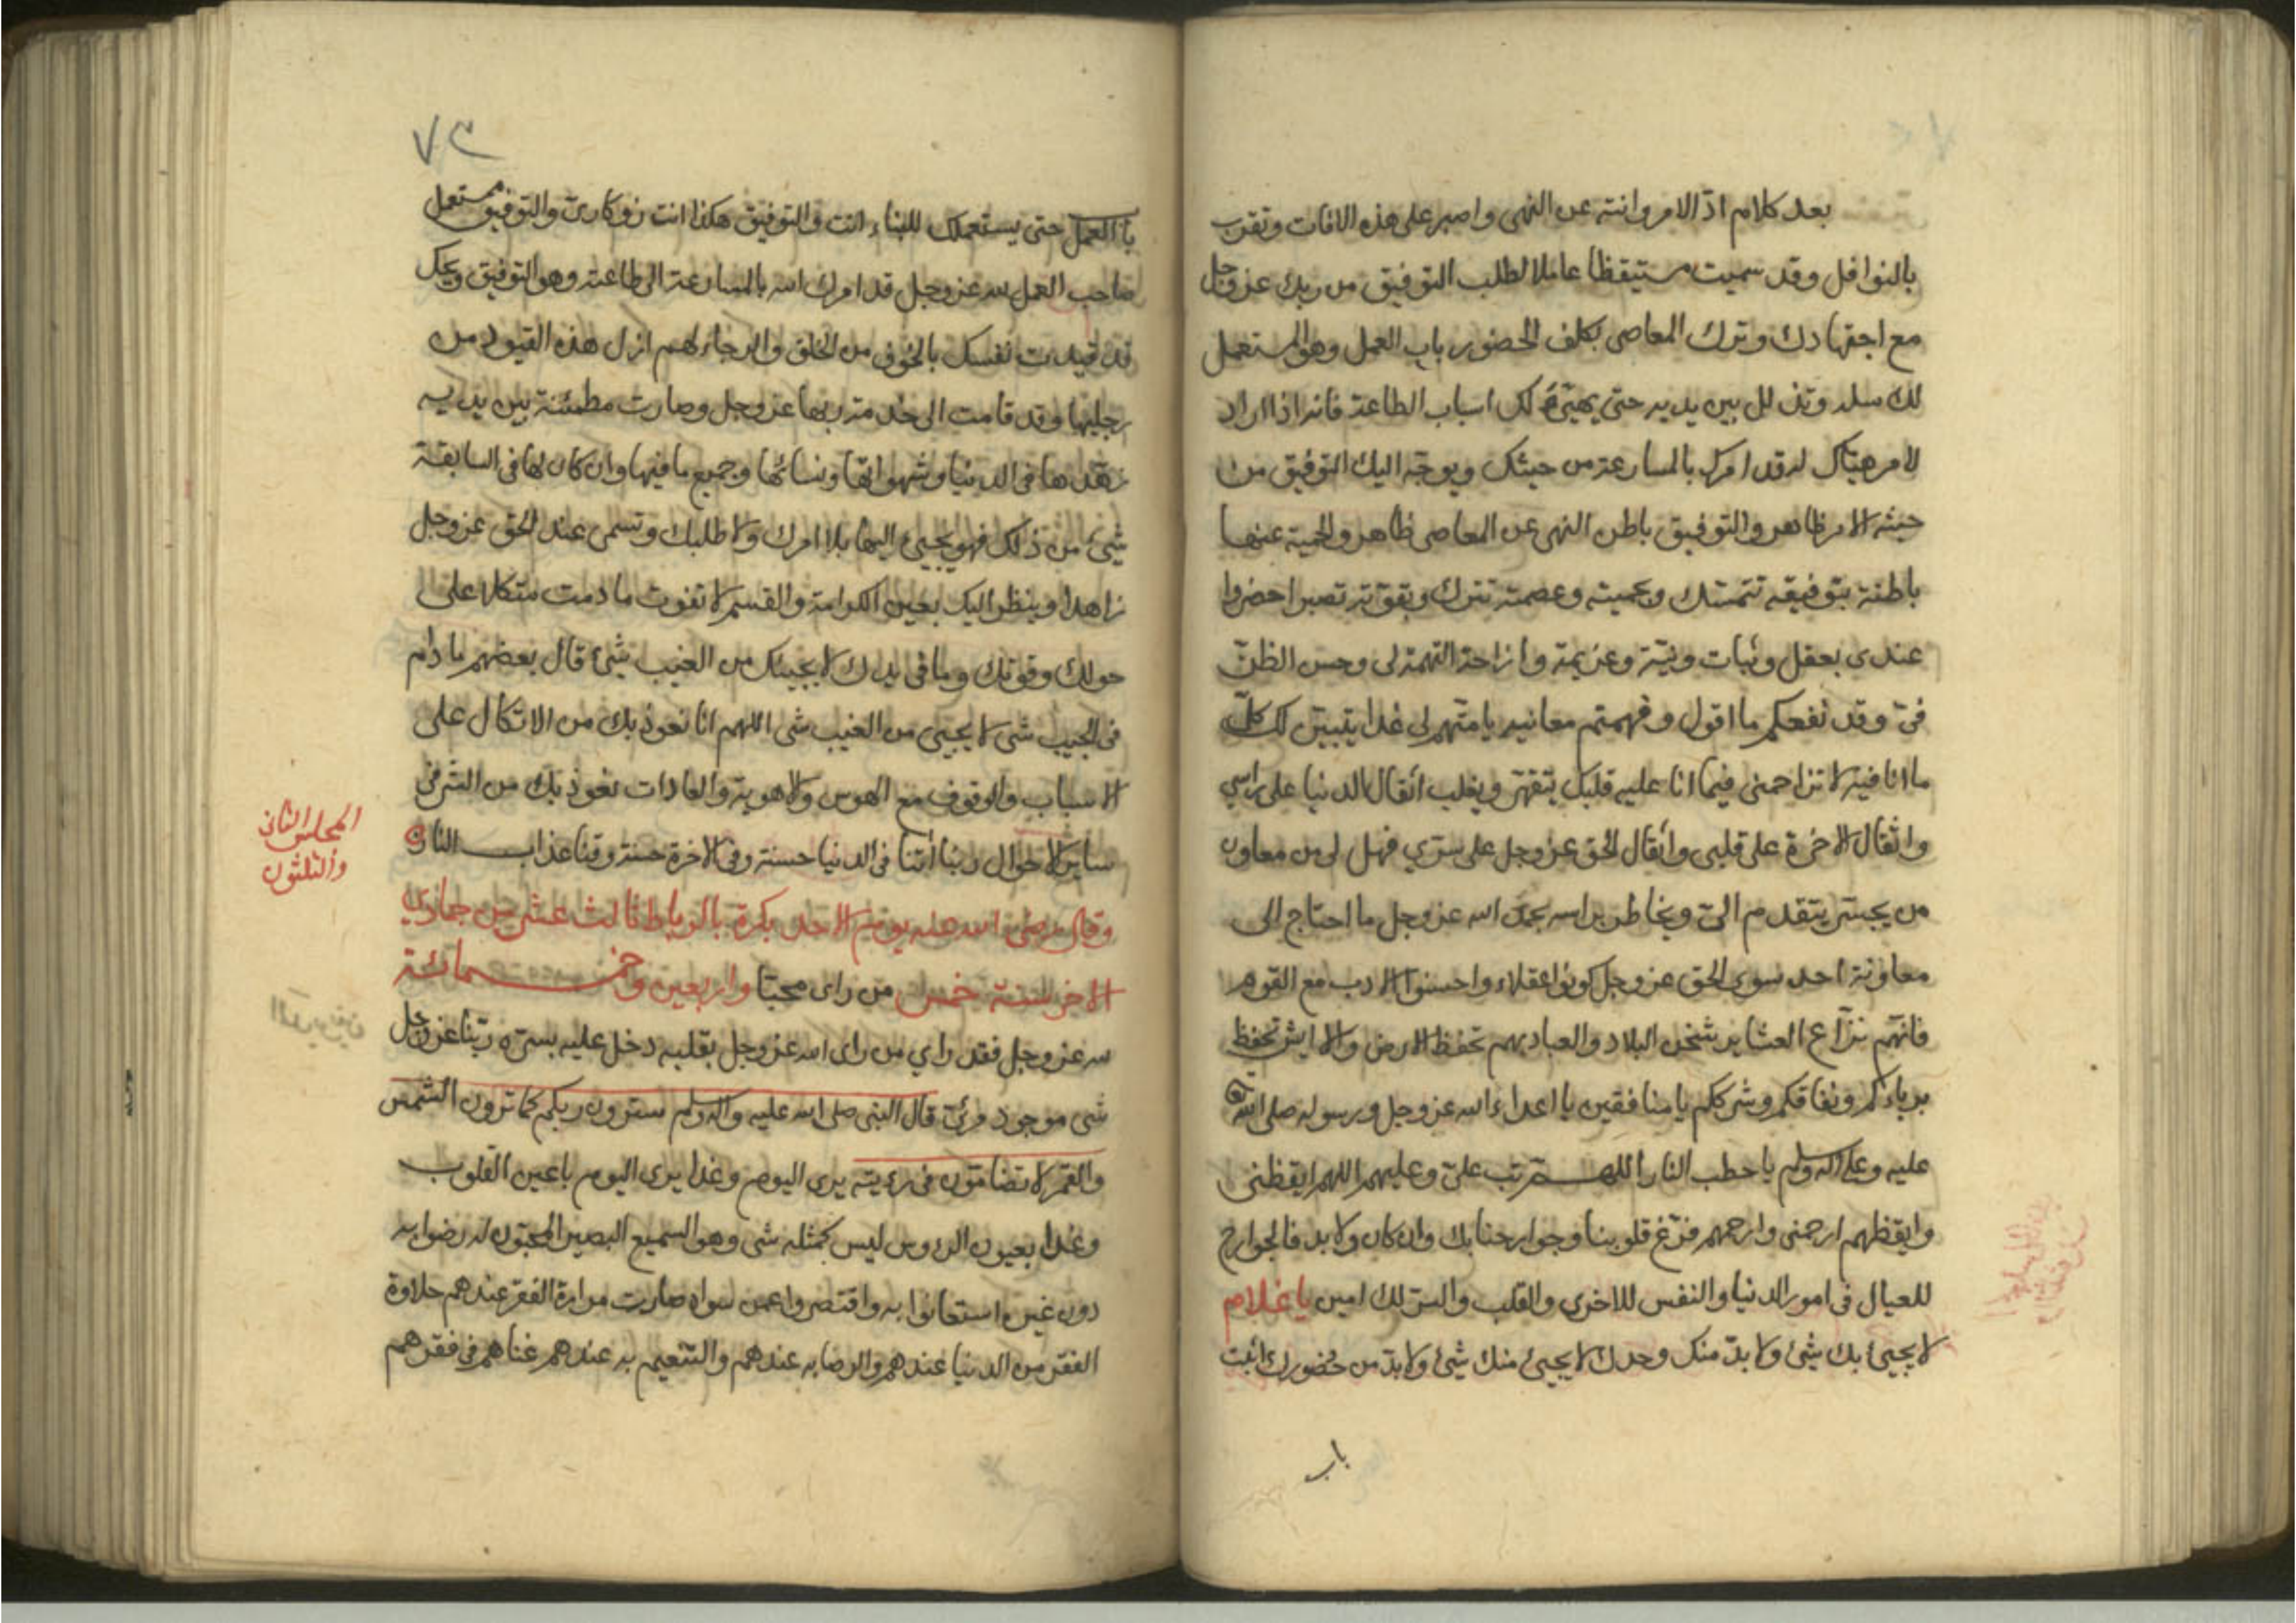 بعد كلام ادّ الامر وانته عن النهى واصبر على هذه الافات وتقرب
بالنوافل وقد سميت مستيقظا عاملا لطلب التوفيق من ربك عز وجل
مع اجتهادك وترك المعاصى بكلف الحضور باب العمل وهو المستعمل
لك سله وتذلل بين يديه حتى يهيّئ لك اسباب الطاعة فانه اذا اراد
لامر هيّاك له قد امرك بالمسارعة من حيثك ويوجّه اليك التوفيق من
حيثه الامر ظاهر والتوفيق باطن النهى عن المعاصى ظاهر والحمية عنها
باطنة بتوفيقه تتمسك وبحميته وعصمته تترك وبقوّته تصبر احضروا
عندى بعقل وثبات ونيّة وعزيمة وازاحة التهمة لى وحسن الظنّ
فىّ وقد نفعكم ما اقول وفهمتم معانيه يا متّهم لى غدا يتبيّن لك كلّ
ما انا فيه لا تزاحمنى فيما انا عليه قلبك يتقهّر ويغلب اثقال الدنيا على راسي
واثقال الاخرة على قلبى واثقال الحق عز وجل على سرّي فهل لى من معاون
من يجسر يتقدم الىّ ويخاطر براسه بحمد الله عز وجل ما احتاج الى
معاونة احد سوى الحق عز وجل كونوا عقلاء واحسنوا الادب مع القوم
فانهّم نزّاع العشاير شحن البلاد والعباد بهم تحفظ الارض والا ايش تحفظ
برياءكم ونفاقكم وشرككم يا منافقين يا اعداء الله عز وجل ورسوله صلى الله
عليه وعلى اله وسلم يا حطب النار اللهم تب علىّ وعليهم اللهم ايقظنى
وايقظهم ارحمنى وارحمهم فرّغ قلوبنا وجوارحنا بك وان كان ولا بد فالجوارح
للعيال فى امور الدنيا والنفس للاخرى والقلب والسرّ لك امين يا غلام
لا يجيئ بك شئ ولا بدّ منك وحدك لا يجيئ منك شئ ولا بدّ من حضورك اثبت
باب
٧٣
باب العمل حتى يستعملك للبناء انت والتوفيق هكذا انت زوكارىّ والتوفيق مستعمل
صاحب العمل لله عز وجل قد امرك الله بالمسارعة الى طاعته وهو التوفيق ويحك
قد قيدت نفسك بالخوف من الخلق والرجاء لهم ازل هذه القيود من
رجليها وقد قامت الى خدمة ربها عز وجل وصارت مطمئنة بين يديه
زهّدها فى الدنيا وشهواتها ونسائها وجميع ما فيها وان كان لها فى السابقة
شئ من ذلك فهو يجيئ اليها بلا امرك ولا طلبك وتسمى عند الحق عز وجل
زاهدا وينظر اليك بعين الكرامة والقسم لا تفوت ما دمت متكلا على
حولك وقوتك وما فى يدك لا يجيئك من الغيب شئ قال بعضهم ما دام
فى الجيب شى لا يجيئ من الغيب شى اللهم انا نعوذ بك من الاتكال على
الاسباب والوقوف مع الهوس والاهوية والعادات نعوذ بك من الشر فى
ساير الاحوال ربنا اتنا فى الدنيا حسنة وفى الاخرة حسنة وقنا عذاب النار
المجلس الثانى
والثلثون
وقال رضى الله عنه يوم الاحد بكرة بالرباط ثالث عشر من جمادي
الاخر سنة خمس واربعين وخمسمائة من راى محبّا
لله عز وجل فقد راي من راى الله عز وجل بقلبه دخل عليه بسرّه ربّنا عز وجل
شى موجود مرئىّ قال النبى صلى الله عليه واله وسلم سترون ربكم كما ترون الشمس
والقمر لا تضامّون فى رئيته يرى اليوم وغدا يرى اليوم باعين القلوب
وغدا بعيون الرءوس ليس كمثله شى وهو السميع البصير المحبّون له رضوا به
دون غيره استعانوا به واقتصروا عمن سواه صارت مرارة الفقر عندهم حلاوة
الفقر من الدنيا عندهم والرضا به عندهم والتنعيم به عندهم غناهم فى فقرهم